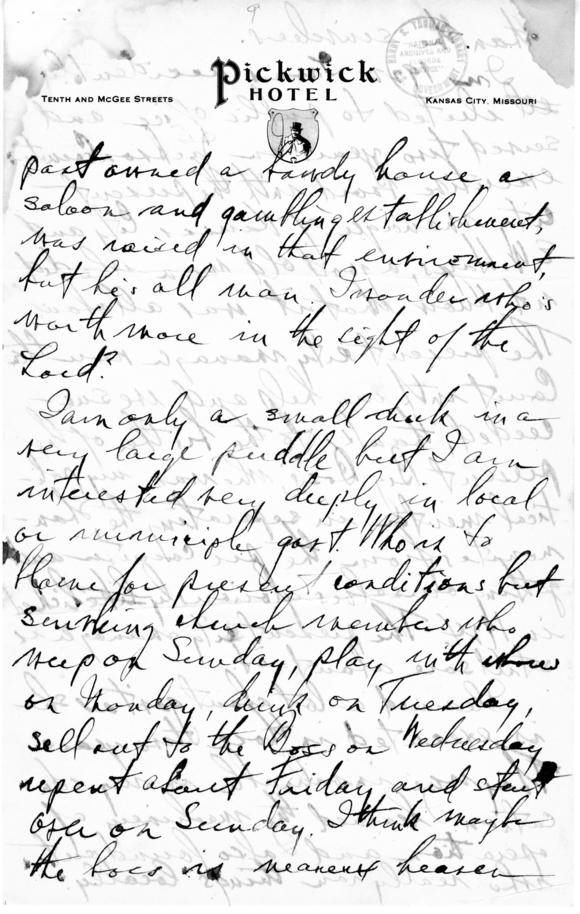 Pickwick
HOTEL
TENTH AND MCGEE STREETS
KANSAS CITY, MISSOURI
past owned a bawdy house, a
saloon and gambling establishment,
was raised in that enviroment,
but he's all man. I wonder who's
worth more in the sight of the
Lord?
I am only a small duck in a
very large puddle but I am
interested very deeply in local
or municiple govt. Who is to
blame for present conditions but
sniveling church members who
weep on Sunday, play with whores
on Monday, drink on Tuesday,
sell out to the Boss on Wednesday,
repent about Friday and start
over on Sunday. I think maybe
the boss is nearer heaven